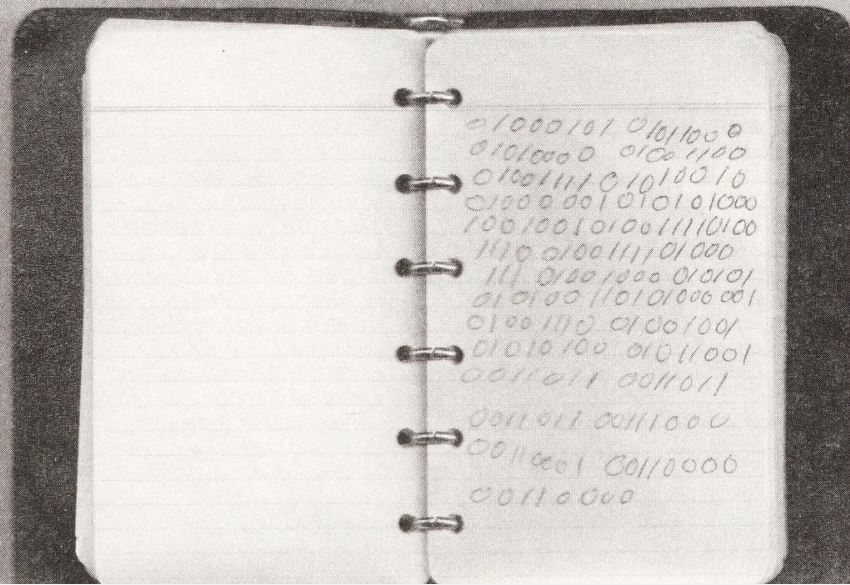 01000101 01011000
01010000 01001100
01001111 01010010
01000001 01010100 0
1001001 01001111 0100
1110 01001111 01000
111 01001000 010101
01 01001101 01000001
01001110 01001001
01010100 01011001
0011011 0011011
0011011 00111000
00110001 00110000
00110000